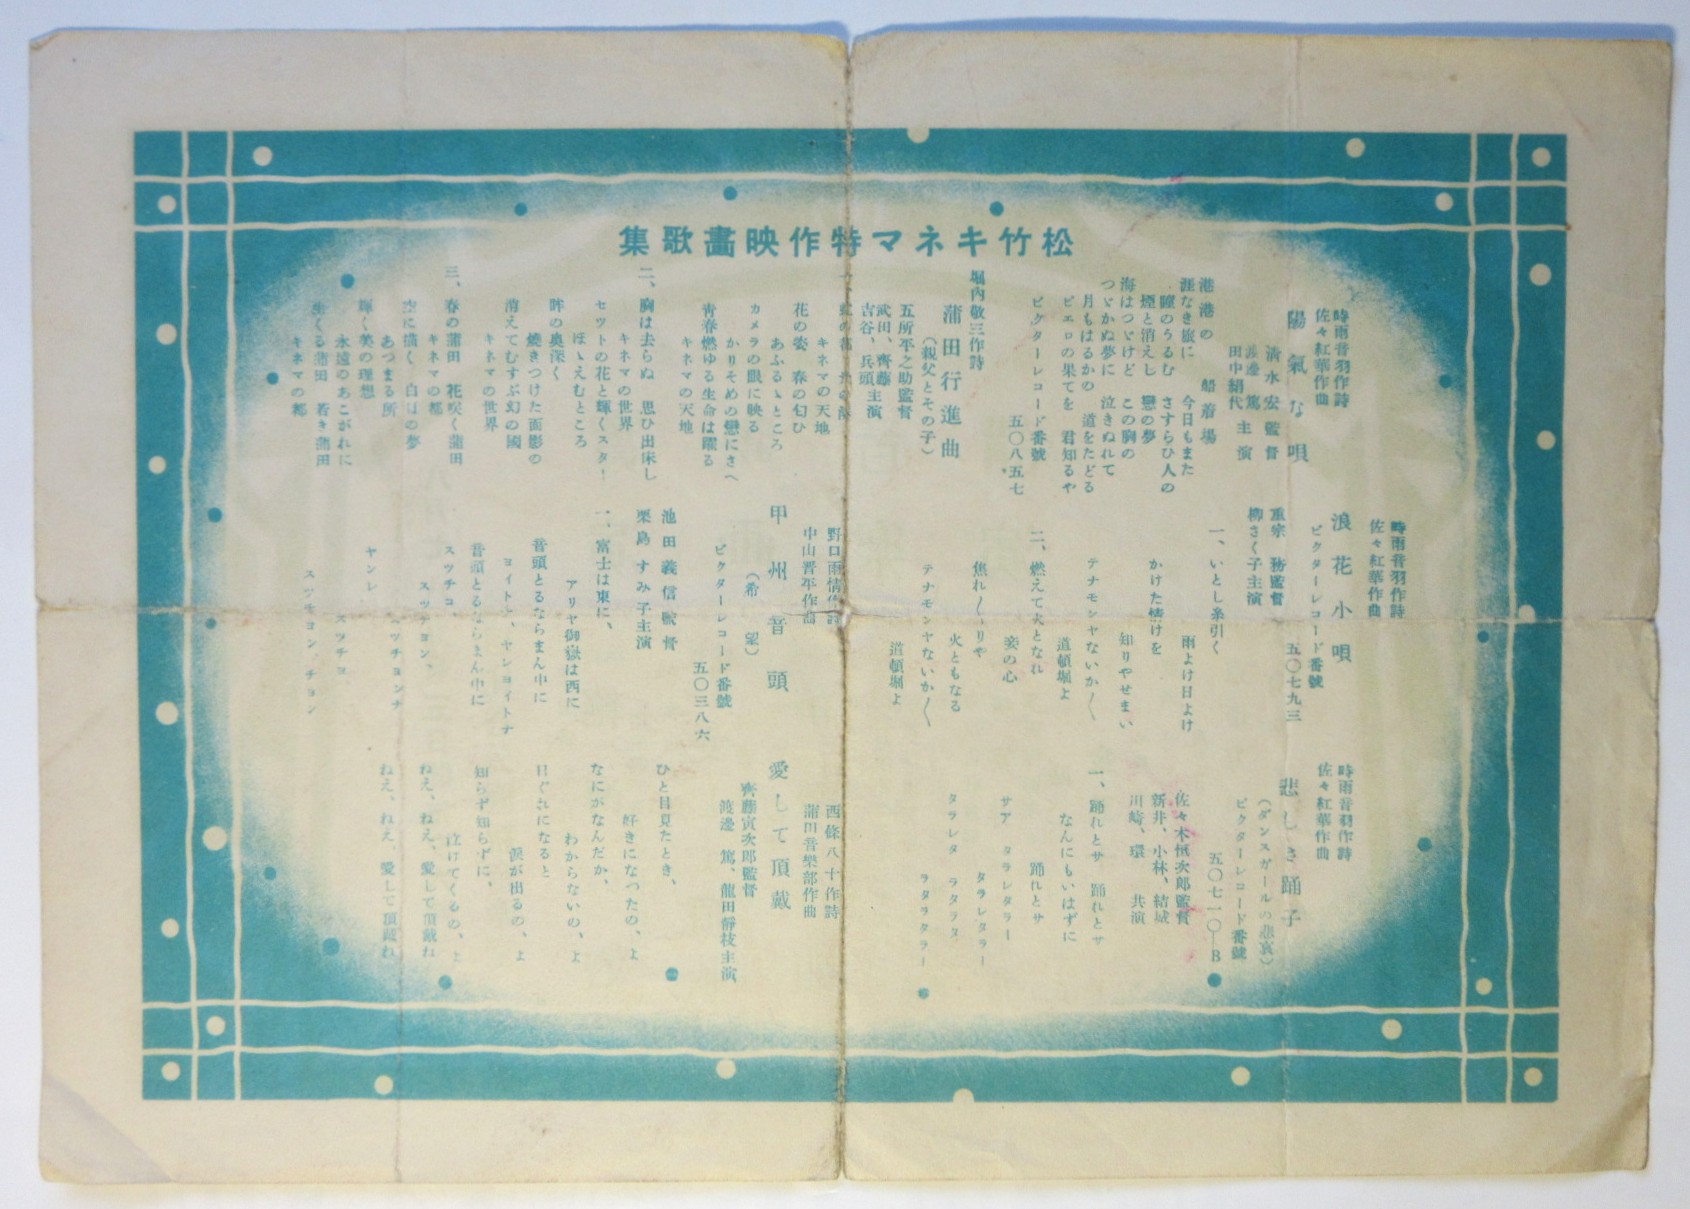 松竹キネマ特作映畫歌集
時雨音羽作詩
佐々紅華作曲
陽氣な唄
清水宏監督
渡邊篤主演
田中絹代
港港の 船着場
涯なき旅に 今日もまた
瞳のうるむ さすらひ人の
煙と消えし 戀の夢
海はつゞけど この胸の
つゞかぬ夢に 泣きぬれて
月もはるかの 道をたどる
ピエロの果てを 君知るや
ビクターレコード番號
五〇八五七
堀内敬三作詩
蒲田行進曲
(親父とその子)
五所平之助監督
武田、齊藤
吉谷、兵頭主演
キネマの天地
花の姿 春の匂ひ
あふるゝところ
カメラの眼に映る
かりそめの戀にさへ
靑春燃ゆる生命は躍る
キネマの天地
二、胸は去らぬ 思ひ出床し
キネマの世界
セツトの花と輝くスター
ほゝえむところ
眸の奥深く
燒きつけた面影の
消えてむすぶ幻の國
キネマの世界
三、春の蒲田 花咲く蒲田
キネマの都
空に描く 白日の夢
あつまる所
輝く美の理想
永遠のあこがれに
生くる蒲田 若き蒲田
キネマの都
時雨音羽作詩
佐々紅華作曲
浪花小唄
ビクターレコード番號
五〇七九三
重宗務監督
柳さく子主演
一、いとし糸引く
雨よけ日よけ
かけた情けを
知りやせまい
テナモンヤないか〳〵
道頓堀よ
二、燃えて火となれ
姿の心
焦れ〳〵りや
火ともなる
テナモンヤないか〳〵
道頓堀よ
野口雨情作詩
中山晋平作曲
甲州音頭
(希望)
ビクターレコード番號
五〇三八六
池田義信監督
栗島すみ子主演
一、富士は東に、
アリヤ御嶽は西に
音頭とるならまん中に
ヨイトナ、ヤレヨイトナ
音頭とるならまん中に
スツチコ、
スツチヨン、
スツチヨンナ
ヤンレ
スツチヨ
スツチヨン、チヨン
時雨音羽作詩
佐々紅華作曲
悲しき踊子
(ダンスガールの悲哀)
ビクターレコード番號
五〇七一〇—B
佐々木恒次郎監督
新井、小林、結城
川崎、環 共演
一、踊れとサ 踊れとサ
なんにもいはずに
踊れとサ
サア タラレタラー
タラレタラー
タラレタ ラタラタ
ラタラタラー
西條八十作詩
蒲田音樂部作曲
愛して頂戴
齊藤寅次郎監督
渡邊篤、龍田靜枝主演
ひと目見たとき、
好きになつたの、よ
なにがなんだか、
わからないの、よ
日ぐれになると
涙が出るの、よ
知らず知らずに、
泣けてくるの、よ
ねえ、ねえ、愛して頂戴ね
ねえ、ねえ、愛して頂戴ね